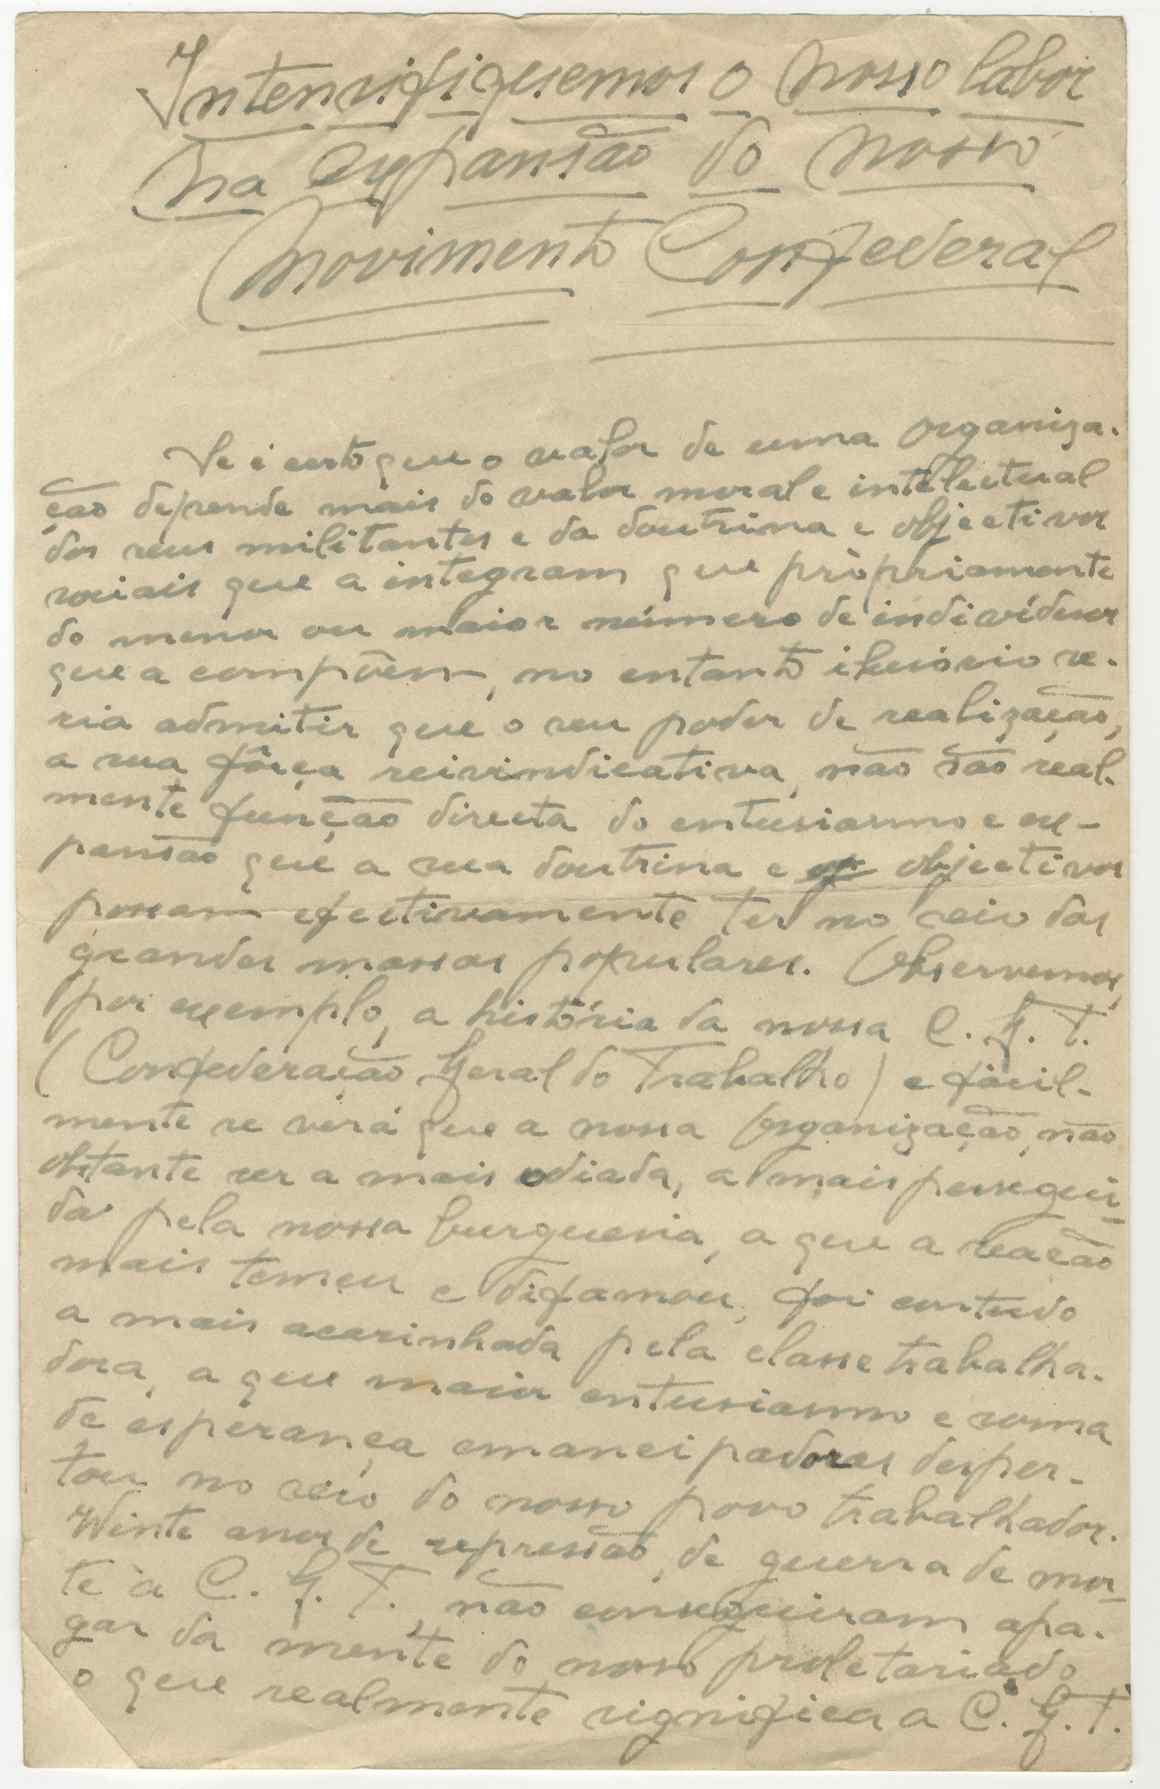 Intensifiquemos o nosso labor
na expansão do nosso
Movimento Confederal
Se é certo que o valor de uma organiza-
ção depende mais do valor moral e intelectual
dos seus militantes e da doutrina e objectivos
sociais que a integram que pròpriamente
do menor ou maior número de indivíduos
que a compõem, no entanto ilusório se-
ria admitir que o seu poder de realização,
a sua fôrça reivindicativa, não são real-
mente função directa do entusiasmo e ex-
pansão que a sua doutrina e os objectivos
possam efectivamente ter no seio das
grandes massas populares. Observemos,
por exemplo, a história da nossa C. G. T.
(Confederação Geral do Trabalho) e fàcil-
mente se verá que a nossa Organização, não
obstante ser a mais odiada, a mais persegui-
da pela nossa burguesia, a que a reação
mais temeu e difamou, foi contudo
a mais acarinhada pela classe trabalha-
dora, a que maior entusiasmo e soma
de esperança emancipadoras desper-
tou no seio do nosso povo trabalhador.
Vinte anos de repressão, de guerra de mor-
te à C. G. T., não conseguiram apa-
gar da mente do nosso proletariado
o que realmente significa a C. G. T.